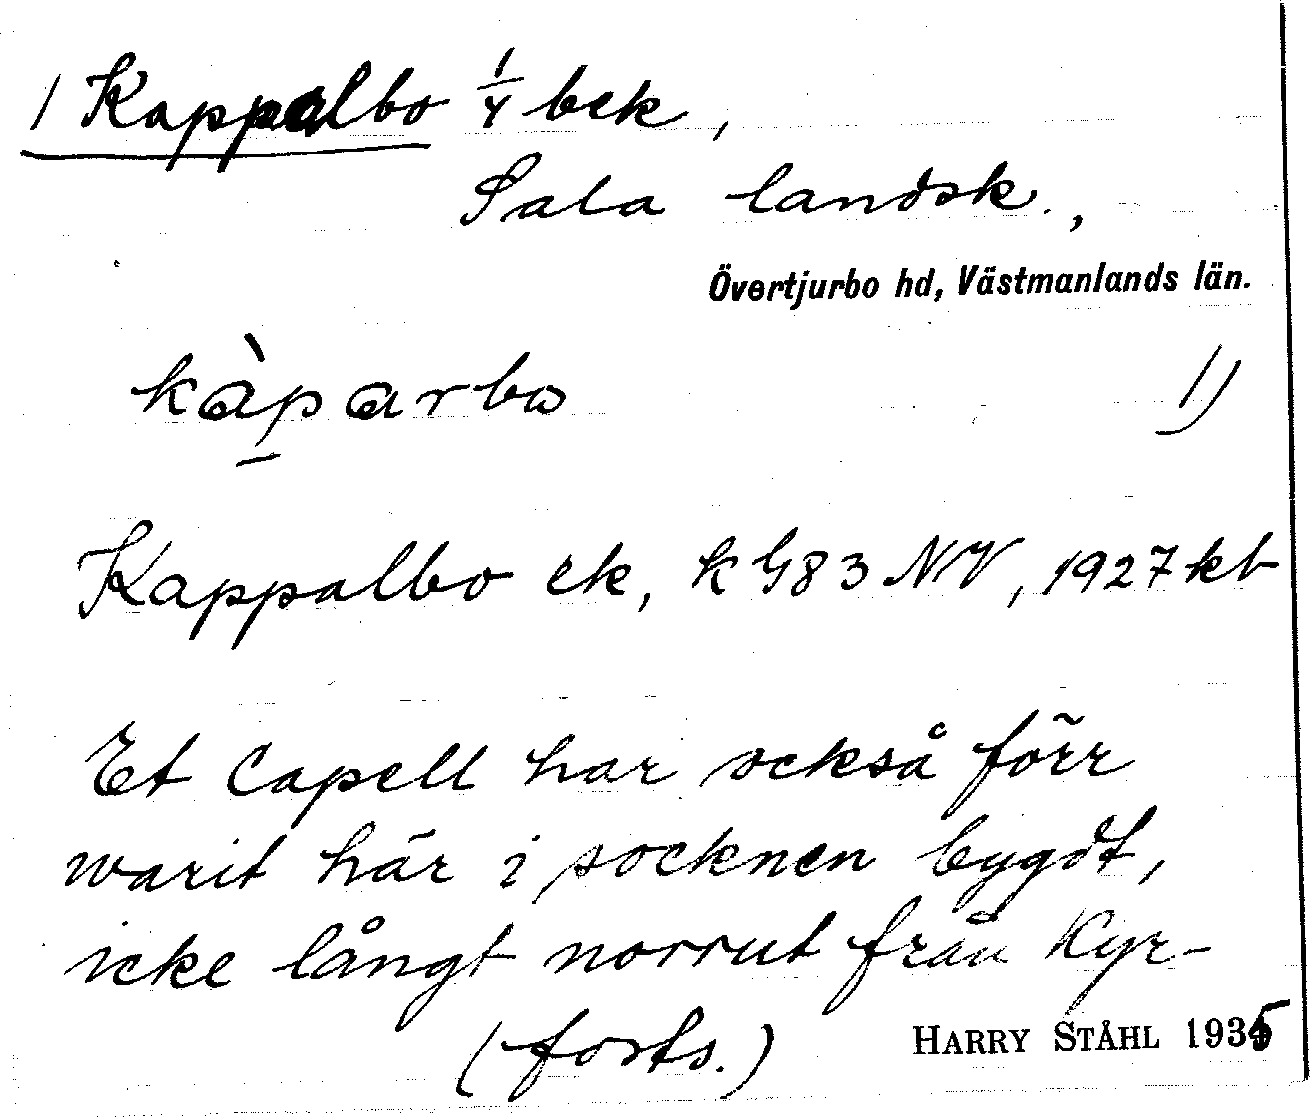 1 Kappalbo 1/4 bek,
Sala landsk.,
Övertjurbo hd, Västmanlands län.
kàparbo 1)
Kappalbo ek, k G83 NV, 1927 kb
Et Capell har också förr
warit här i socknen bygdt,
icke långt norrut från Kyr-
(forts.)
HARRY STÅHL 1935